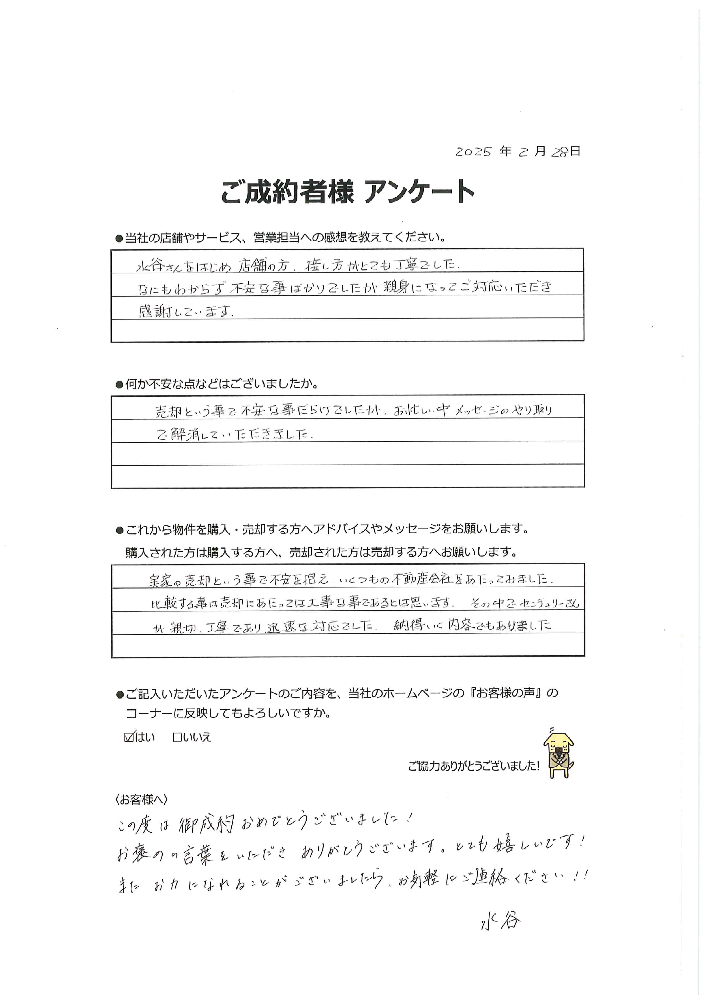 2025 年 2 月 28日
ご成約者様 アンケート
●当社の店舗やサービス、営業担当への感想を教えてください。
水谷さんをはじめ 店舗の方、接し方がとても丁寧でした。
なにもわからず 不安な事ばかりでしたが 親身になってご対応いただき
感謝しています。
●何か不安な点などはございましたか。
売却という事で 不安な事だらけでしたが、お忙しい中 メッセージのやり取り
で解消していただきました。
●これから物件を購入・売却する方へアドバイスやメッセージをお願いします。
購入された方は購入する方へ、売却された方は売却する方へお願いします。
実家の売却という事で不安を抱え いくつもの不動産会社をあたってみました。
比較する事は売却にあたっては大事な事であるとは思います。 その中で センチュリーさん
が 親切、丁寧であり 迅速な対応でした。 納得いく内容でもありました
●ご記入いただいたアンケートのご内容を、当社のホームページの『お客様の声』の
コーナーに反映してもよろしいですか。
☑はい □いいえ
ご協力ありがとうございました!
〈お客様へ〉
この度は 御成約 おめでとうございました!
お褒めの言葉をいただき ありがとうございます。とても嬉しいです!
また お力になれることがございましたら、お気軽にご連絡ください!!
水谷